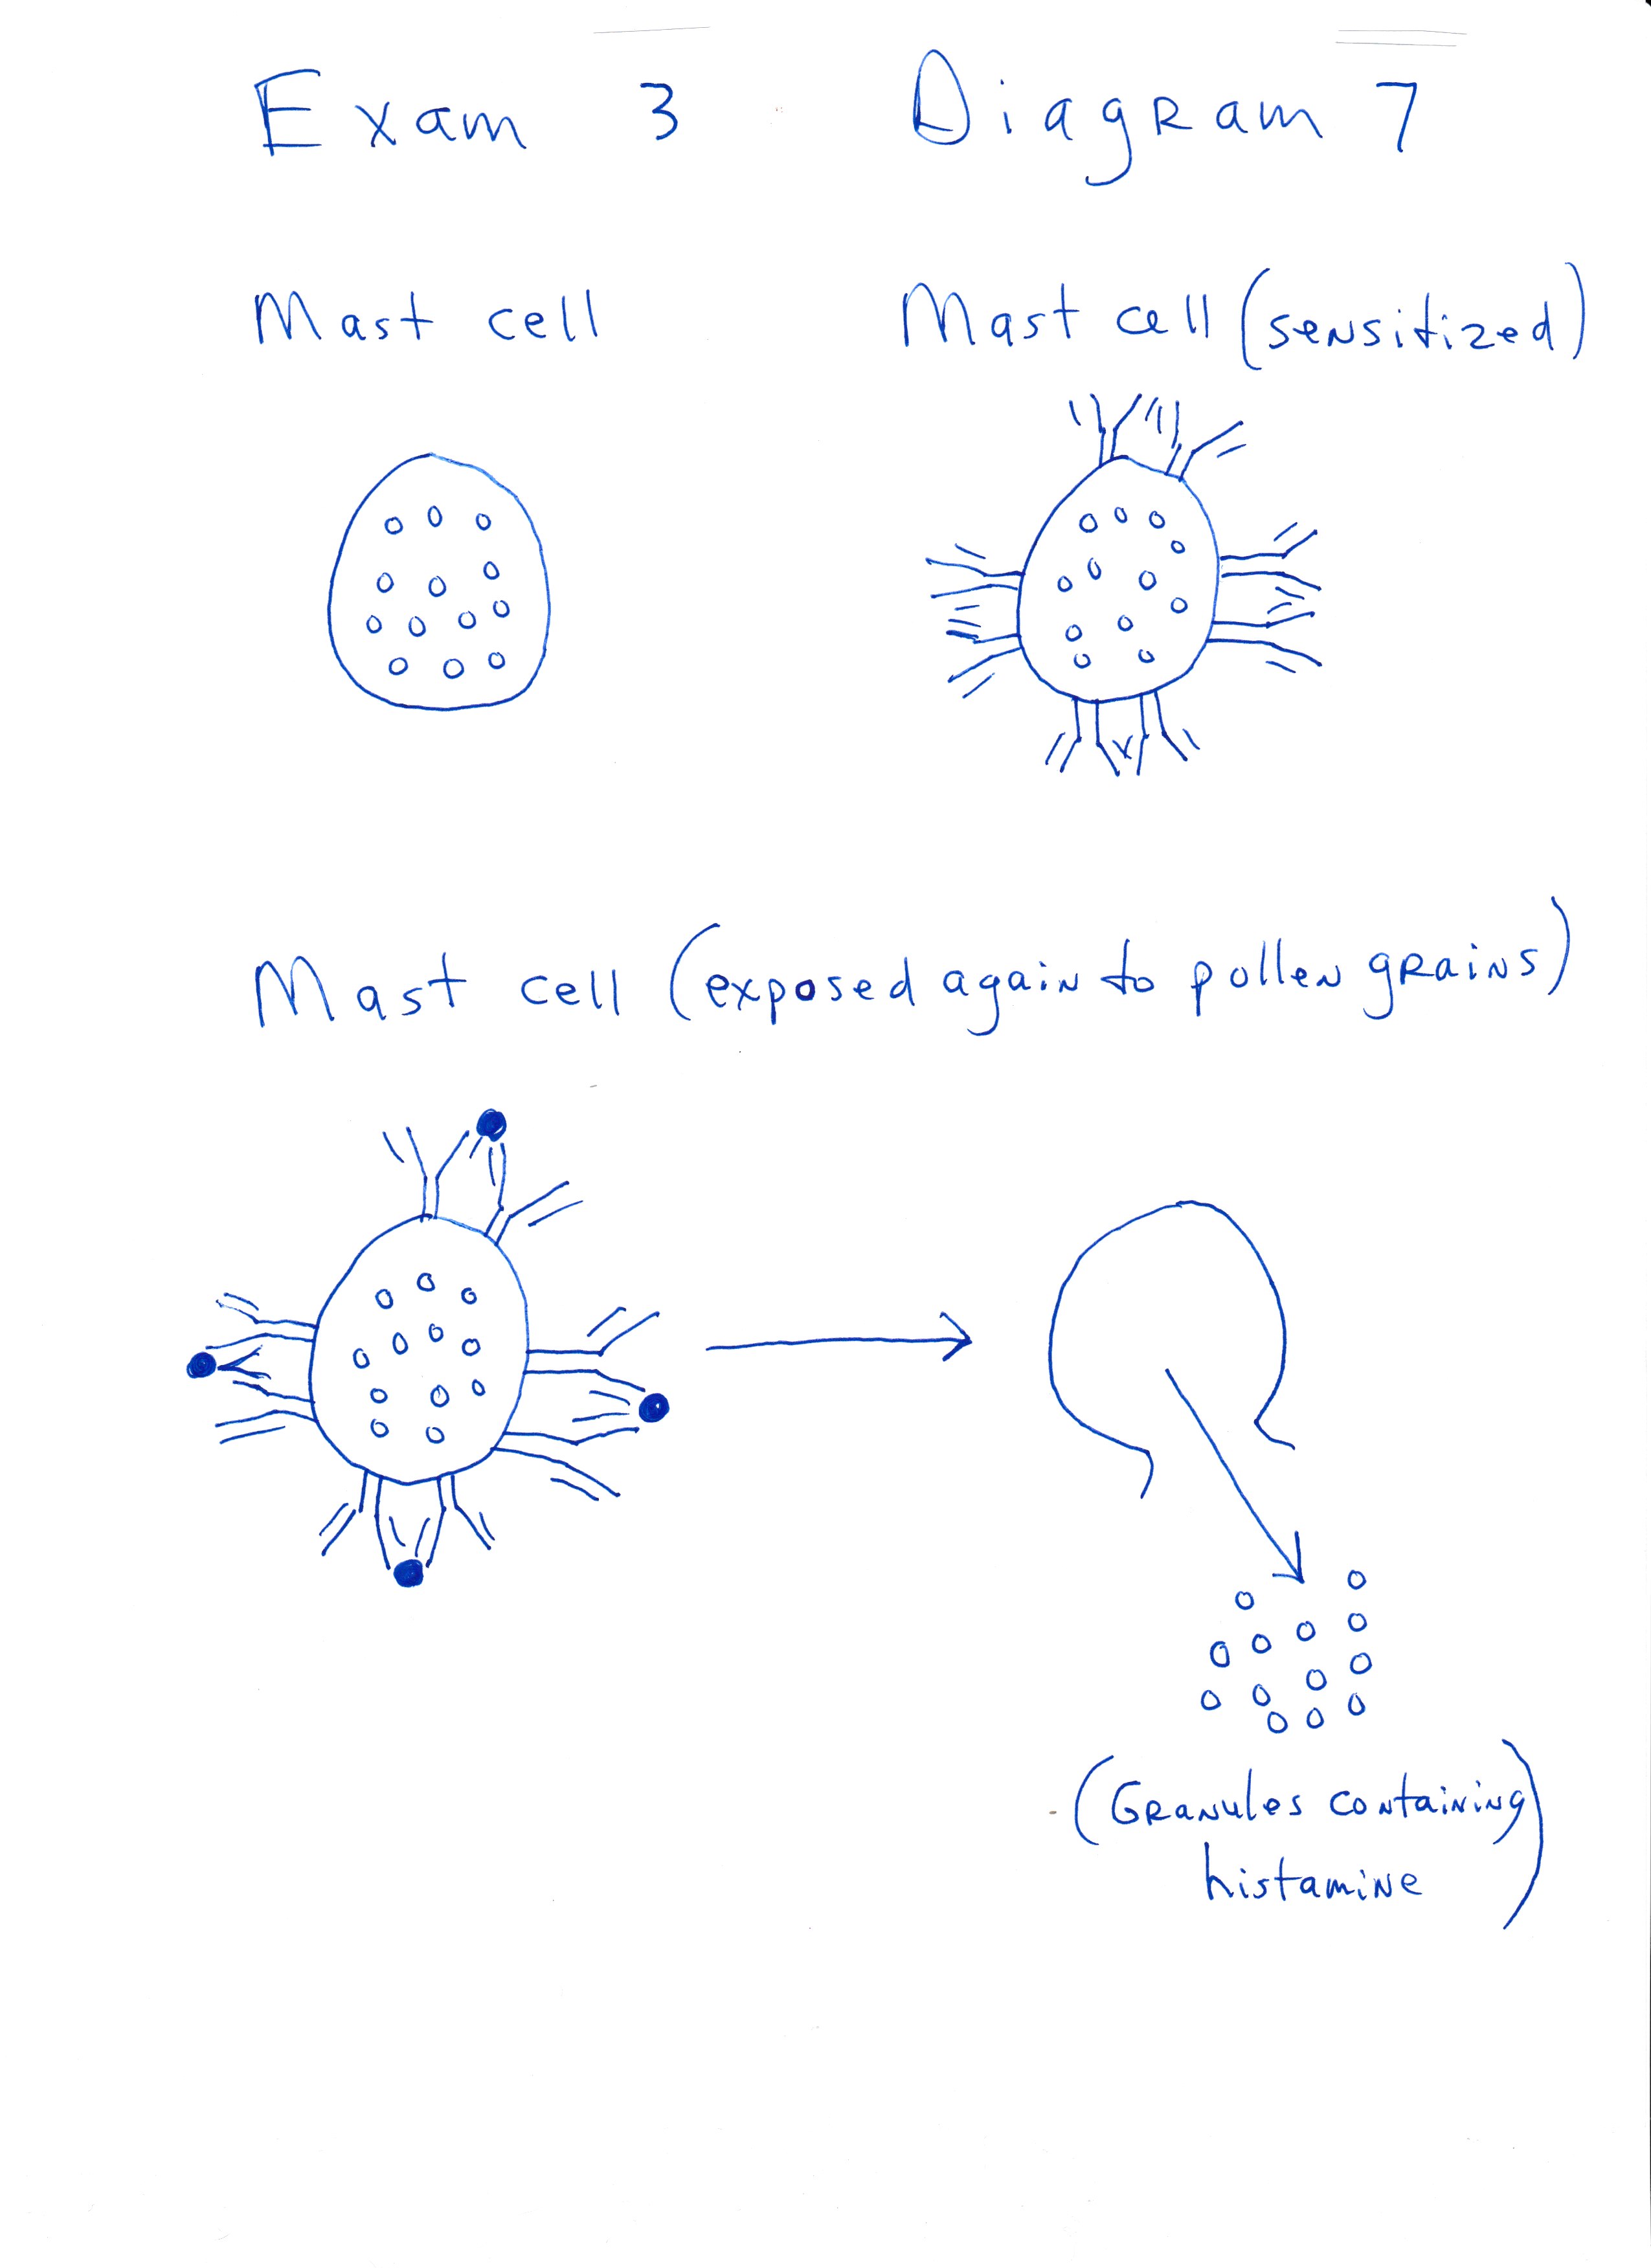 Exam 3 Diagram 7
Mast cell
Mast cell (sensitized)
Mast cell (exposed again to pollen grains)
(Granules containing
histamine)